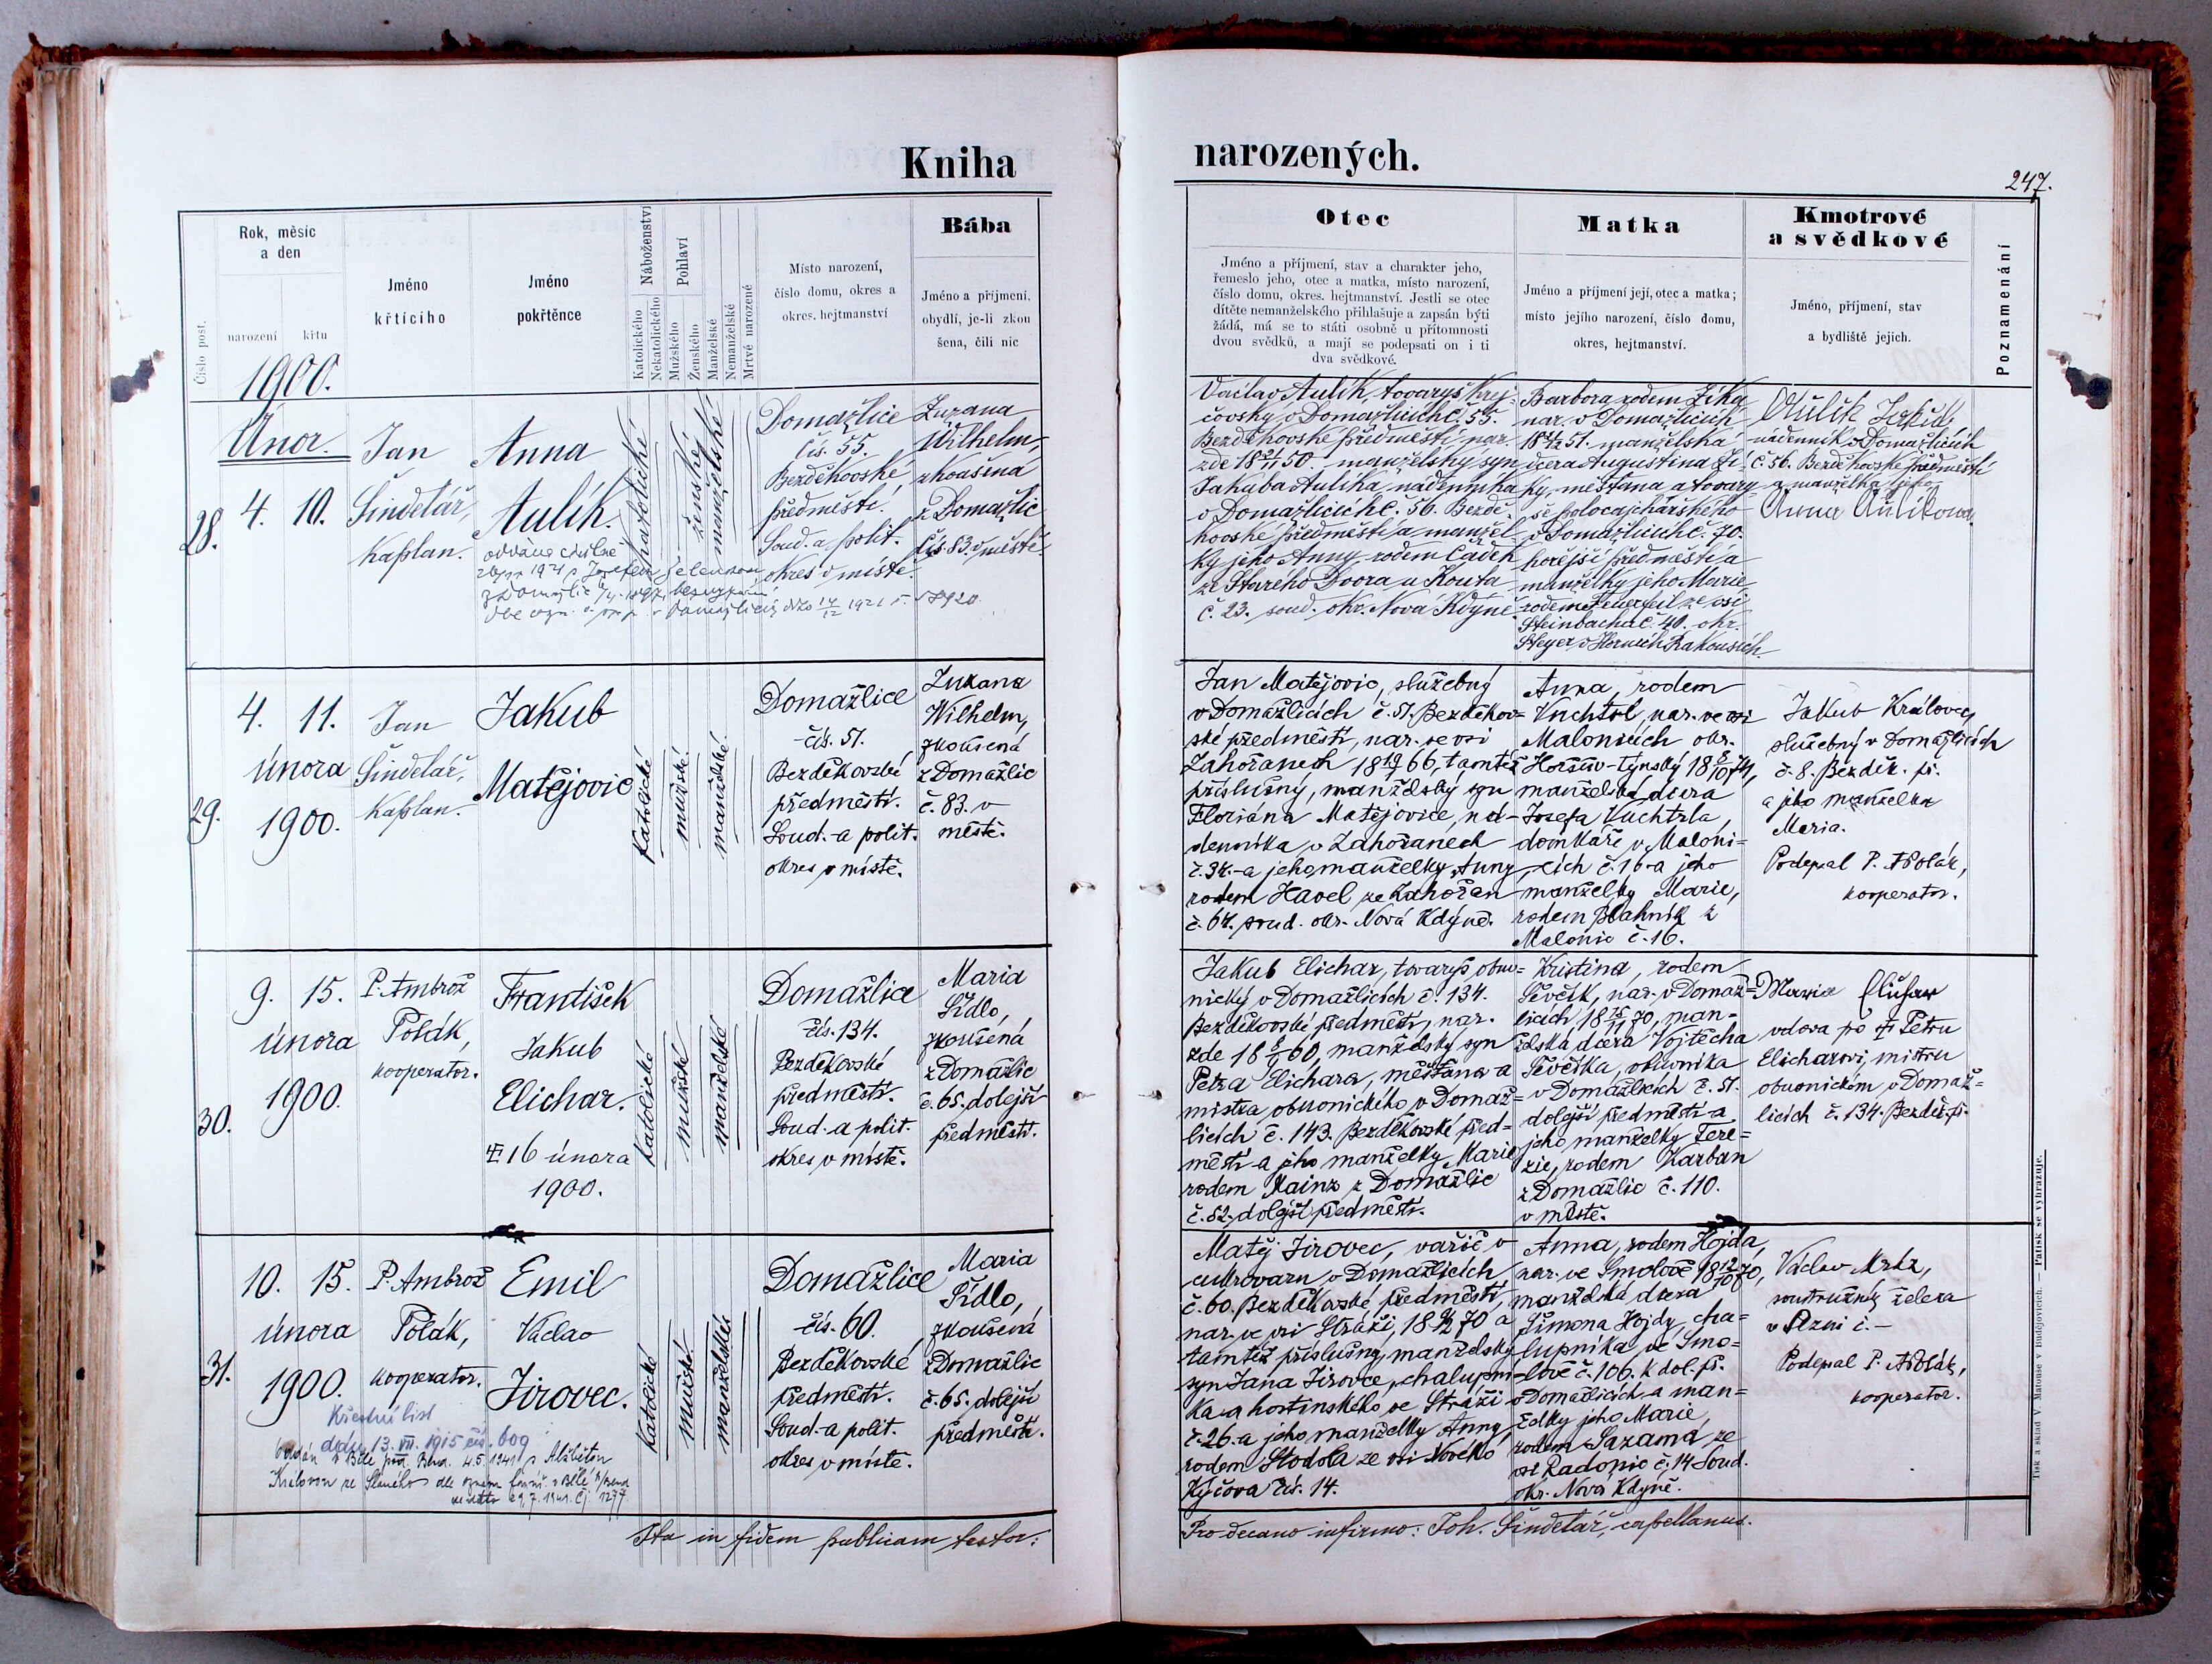 Kniha
narozených.
247.
Číslo post.
Rok, měsíc
a den
narození
křtu
1900.
Jméno
křtícího
Jméno
pokřtěnce
Náboženství
Katolického
Nekatolického
Pohlaví
Mužského
Ženského
Manželské
Nemanželské
Mrtvě narozené
Místo narození,
číslo domu, okres a
okres. hejtmanství
Bába
Jméno a příjmení,
obydlí, je-li zkou
šena, čili nic
Otec
Jméno a příjmení, stav a charakter jeho,
řemeslo jeho, otec a matka, místo narození,
číslo domu, okres. hejtmanství. Jestli se otec
dítěte nemanželského přihlašuje a zapsán býti
žádá, má se to státi osobně u přítomnosti
dvou svědků, a mají se podepsati on i ti
dva svědkové.
Matka
Jméno a příjmení její, otec a matka;
místo jejího narození, číslo domu,
okres, hejtmanství.
Kmotrové
a svědkové
Jméno, příjmení, stav
a bydliště jejich.
Poznamenání
Únor.
28.
4.
10.
Jan
Šindelář,
kaplan.
Anna
Aulík.
katolické
ženské
manželské
Domažlice
čís. 55.
Bezděkovské
předměstí.
Soud. a polit.
okres v místě.
Zuzana
Wilhelm,
zkoušená
z Domažlic
čís. 83. v městě.
Václav Aulík, tovaryš krej-
čovský v Domažlicích č. 55.
Bezděkovské předměstí nar.
zde 18 50. manželský syn
Jakuba Aulíka, nádenníka
v Domažlicích č. 56. Bezdě-
kovské předměstí a manžel-
ky jeho Anny, rodem Cadek
ze Starého Dvora u Kouta
č. 23. soud. okr. Nová Kdyně.
Barbora rodem Zíka
nar. v Domažlicích
18 51. manželská
dcera Augustina Zí-
ky, měšťana a tovary-
še
v Domažlicích č. 70.
hořejší předměstí a
manželky jeho Marie
rodem ze vsi
Steinbachu č. 40. okr.
Steyer v Horních Rakousích.
Aulík Jakub,
nádenník v Domažlicích
č. 56. Bezděkovské předměstí
a manželka jeho
Anna Aulíkova
29.
4. 11.
února
1900.
Jan
Šindelář,
kaplan.
Jakub
Matějovic
katolické
mužské
manželské
Domažlice
čís. 51.
Bezděkovské
předměstí.
Soud. a polit.
okres v místě.
Zuzana
Wilhelm,
zkoušená
z Domažlic
č. 83. v
městě.
Jan Matějovic, služebný
v Domažlicích č. 51. Bezděkov=
ské předměstí, nar. ve vsi
Zahořanech 18 66, tamtéž
příslušný, manželský syn
Floriána Matějovice, ná-
denníka v Zahořanech
č. 34. a jeho manželky Anny
rodem Havel ze Zahořan
č. 64. soud. okr. Nová Kdyně.
Anna, rodem
Vuchtrl, nar. ve vsi
Malonicích okr.
Horšův-Týnský 18 74,
manželská dcera
Josefa Vuchtrla,
domkáře v Maloni=
cích č. 16 a jeho
manželky Marie,
rodem Blahník z
Malonic č. 16.
Jakub Královec,
služebný v Domažlicích
č. 8. Bezděk. př.
a jeho manželka
Maria.
Podepsal P. A. Polák,
kooperator.
30.
9. 15.
února
1900.
P. Ambrož
Polák,
kooperator.
František
Jakub
Elichar.
16 února
1900.
katolické
mužské
manželské
Domažlice
čís. 134.
Bezděkovské
předměstí.
Soud. a polit.
okres v místě.
Maria
Šídlo,
zkoušená
z Domažlic
č. 65. dolejší
předměstí.
Jakub Elichar, tovaryš obuv=
nický v Domažlicích č. 134.
Bezděkovské předměstí, nar.
zde 18 60, manželský syn
Petra Elichara, měšťana a
mistra obuvnického v Domaž=
licích č. 143. Bezděkovské před=
městí a jeho manželky Marie
rodem Kainz z Domažlic
č. 52. dolejší předměstí.
Kristina, rodem
Ševčík, nar. v Domaž=
licích 18 70, man-
želská dcera Vojtěcha
Ševčíka, obuvníka
v Domažlicích č. 51.
dolejší předměstí a
jeho manželky Tere=
zie, rodem Karban
z Domažlic č. 110.
v městě.
Maria
vdova po Petru
Elicharovi, mistru
obuvnickém v Domaž=
licích č. 134. Bezděk. př.
31.
10. 15.
února
1900.
P. Ambrož
Polák,
kooperator.
Emil
Václav
Jírovec.
Křestní list
dodán 13. VII. 1915 čís. 609
katolické
mužské
manželské
Domažlice
čís. 60.
Bezděkovské
předměstí.
Soud. a polit.
okres v místě.
Maria
Šídlo,
zkoušená
z Domažlic
č. 65. dolejší
předměstí.
Matěj Jírovec, vařič v
cukrovaru v Domažlicích
č. 60. Bezděkovské předměstí,
nar. ve vsi Stráži, 18 70 a
tamtéž příslušný, manželský
syn Jana Jírovce, chalupní-
ka a hostinského ve Stráži
č. 26. a jeho manželky Anny,
rodem Stodola ze vsi Nového
Kýčova čís. 14.
Anna, rodem Hojda,
nar. ve Smolově 18 70,
manželská dcera
Šimona Hojdy, cha=
lupníka ve Smo=
lově č. 106. k dol. př.
v Domažlicích a man=
želky jeho Marie,
rodem Sazama ze
vsi Radonic č. 14 Soud.
okr. Nová Kdyně.
Václav Mrkz,
soustružník železa
v Plzni č. –
Podepsal P. A. Polák,
kooperator.
Ita in fidem publicam testor:
Pro decano infirmo: Joh. Šindelář, capellanus.
Tisk a sklad V. Matouše v Budějovicích. — Patisk se vyhrazuje.